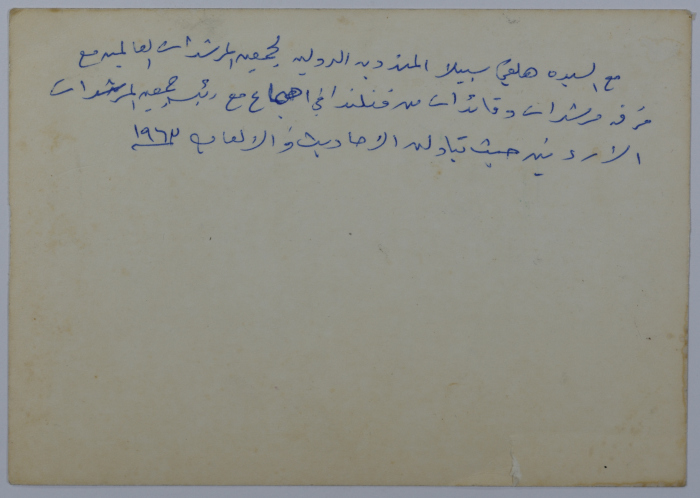 مع السيده هلفي سيبيلا المندوبه الدوليه لجمعية المرشدات العالميه مع
فرقه مرشدات وقائدات من فنلندا في اجتماع مع رئيسة جمعية المرشدات
الأردنيه حيث تبادلن الأحاديث والألعاب ١٩٦٣